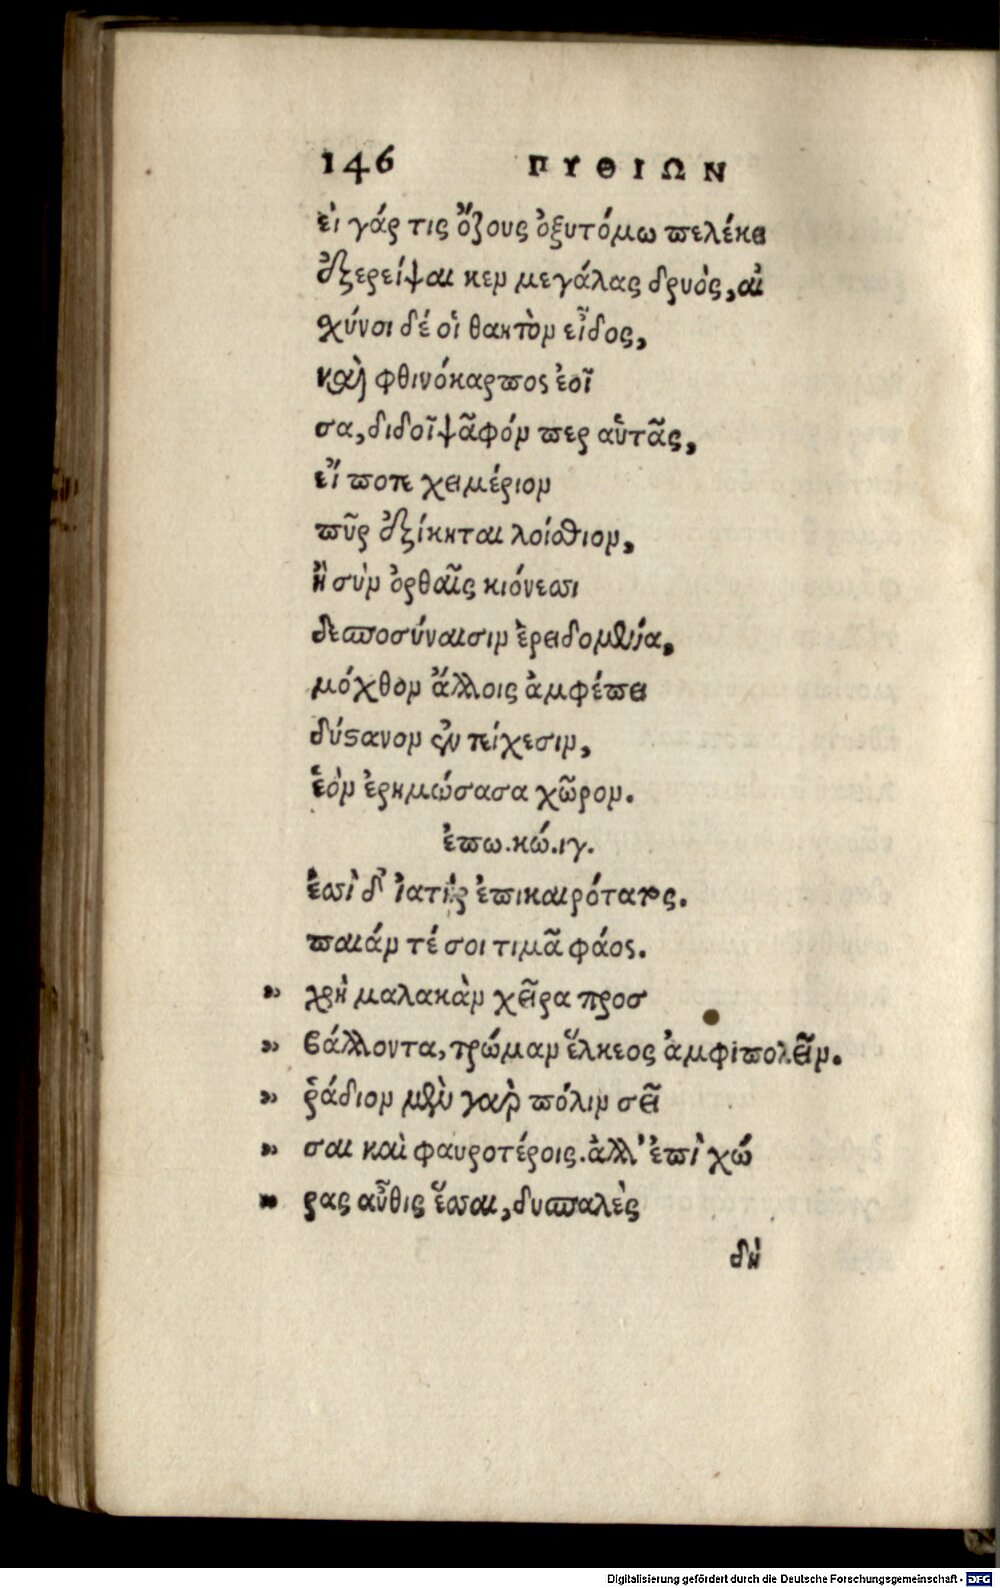 146 ΠΥΘΙΩΝ
εἰ γάρ τις ὄζους ὀξυτόμω πελέκει
ἐξερείψαι κεν μεγάλας δρυὸς, αἰ
χύνοι δέ οἱ θακτὸν εἶδος,
καὶ φθινόκαρπος ἐοῖ
σα, διδοῖ ψᾶφόν περ αὑτᾶς,
εἴ ποτε χειμέριον
πῦρ ἐξίκηται λοίσθιον,
ἢ σὺν ὀρθαῖς κιόνεσσι
δεσποσύναισιν ἐρειδομένα,
μόχθον ἄλλοις ἀμφέπει
δύστανον ἐν τείχεσιν,
ἑὸν ἐρημώσασα χῶρον.
ἐπω. κώ. ιγ.
ἐσσὶ δ' ἰατὴρ ἐπικαιρότατος.
παιάν τέ σοι τιμᾷ φάος.
» χρὴ μαλακὰν χεῖρα προσ
» βάλλοντα, τρώμαν ἕλκεος ἀμφιπολεῖν.
» ῥάδιον μὲν γὰρ πόλιν σεῖ
» σαι καὶ φαυροτέροις. ἀλλ' ἐπὶ χώ
» ρας αὖθις ἕσσαι, δυσπαλὲς
δὴ
Digitalisierung gefördert durch die Deutsche Forschungsgemeinschaft - DFG